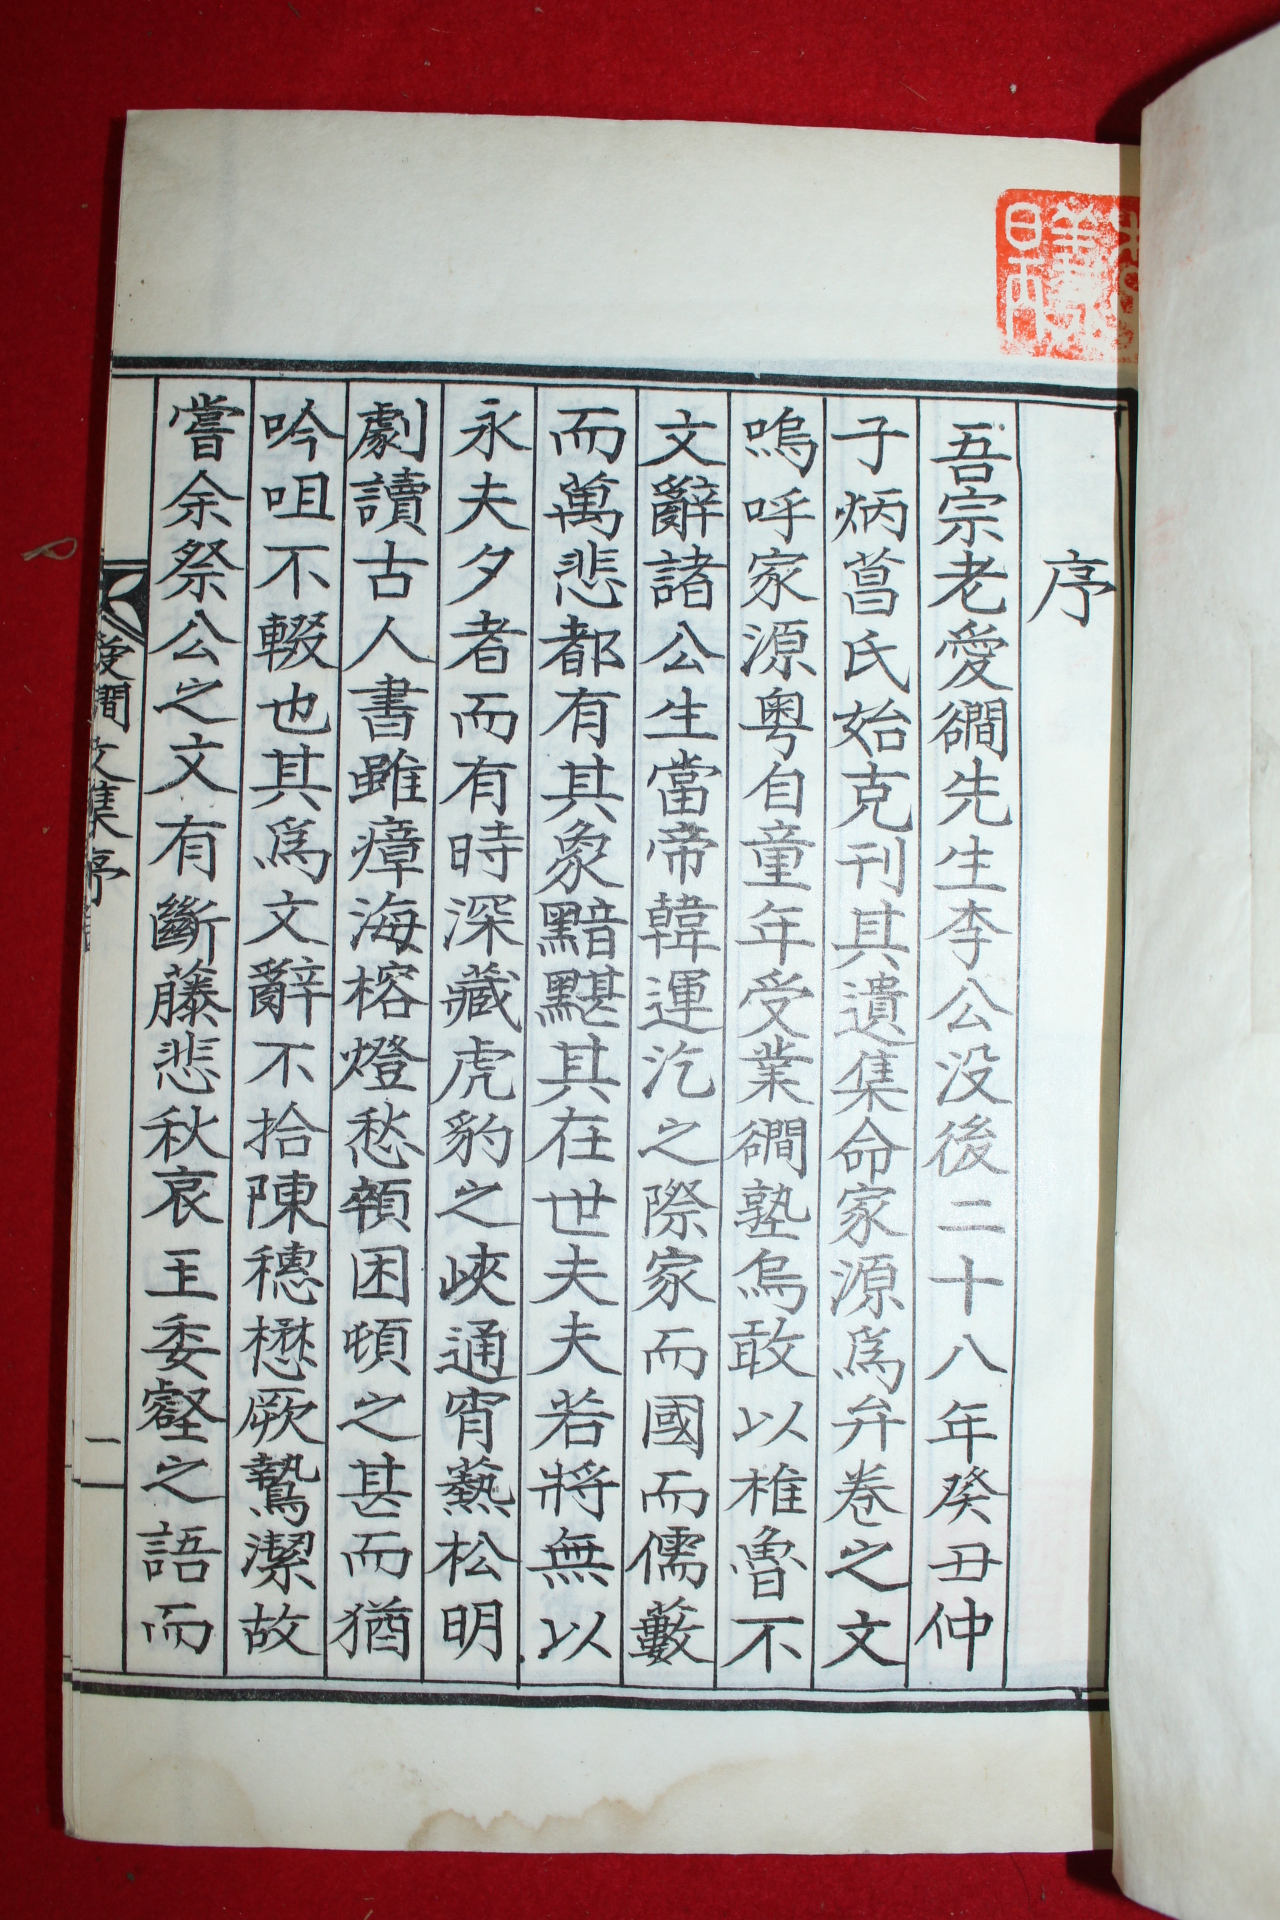 序
吾宗老愛磵先生李公没後二十八年癸丑仲
子炳菖氏始克刊其遺集命家源爲弁卷之文
嗚呼家源粤自童年受業磵塾烏敢以椎魯不
文辭諸公生當帝韓運汔之際家而國而儒藪
而萬悲都有其象黯黮其在世夫夫若將無以
永夫夕者而有時深藏虎豹之峽通宵爇松明
劇讀古人書雖瘴海榕燈愁顇困頓之甚而猶
吟咀不輟也其爲文辭不拾陳穗懋厥鷙潔故
嘗余祭公之文有斷藤悲秋哀王委壑之語而
愛磵文集序
一